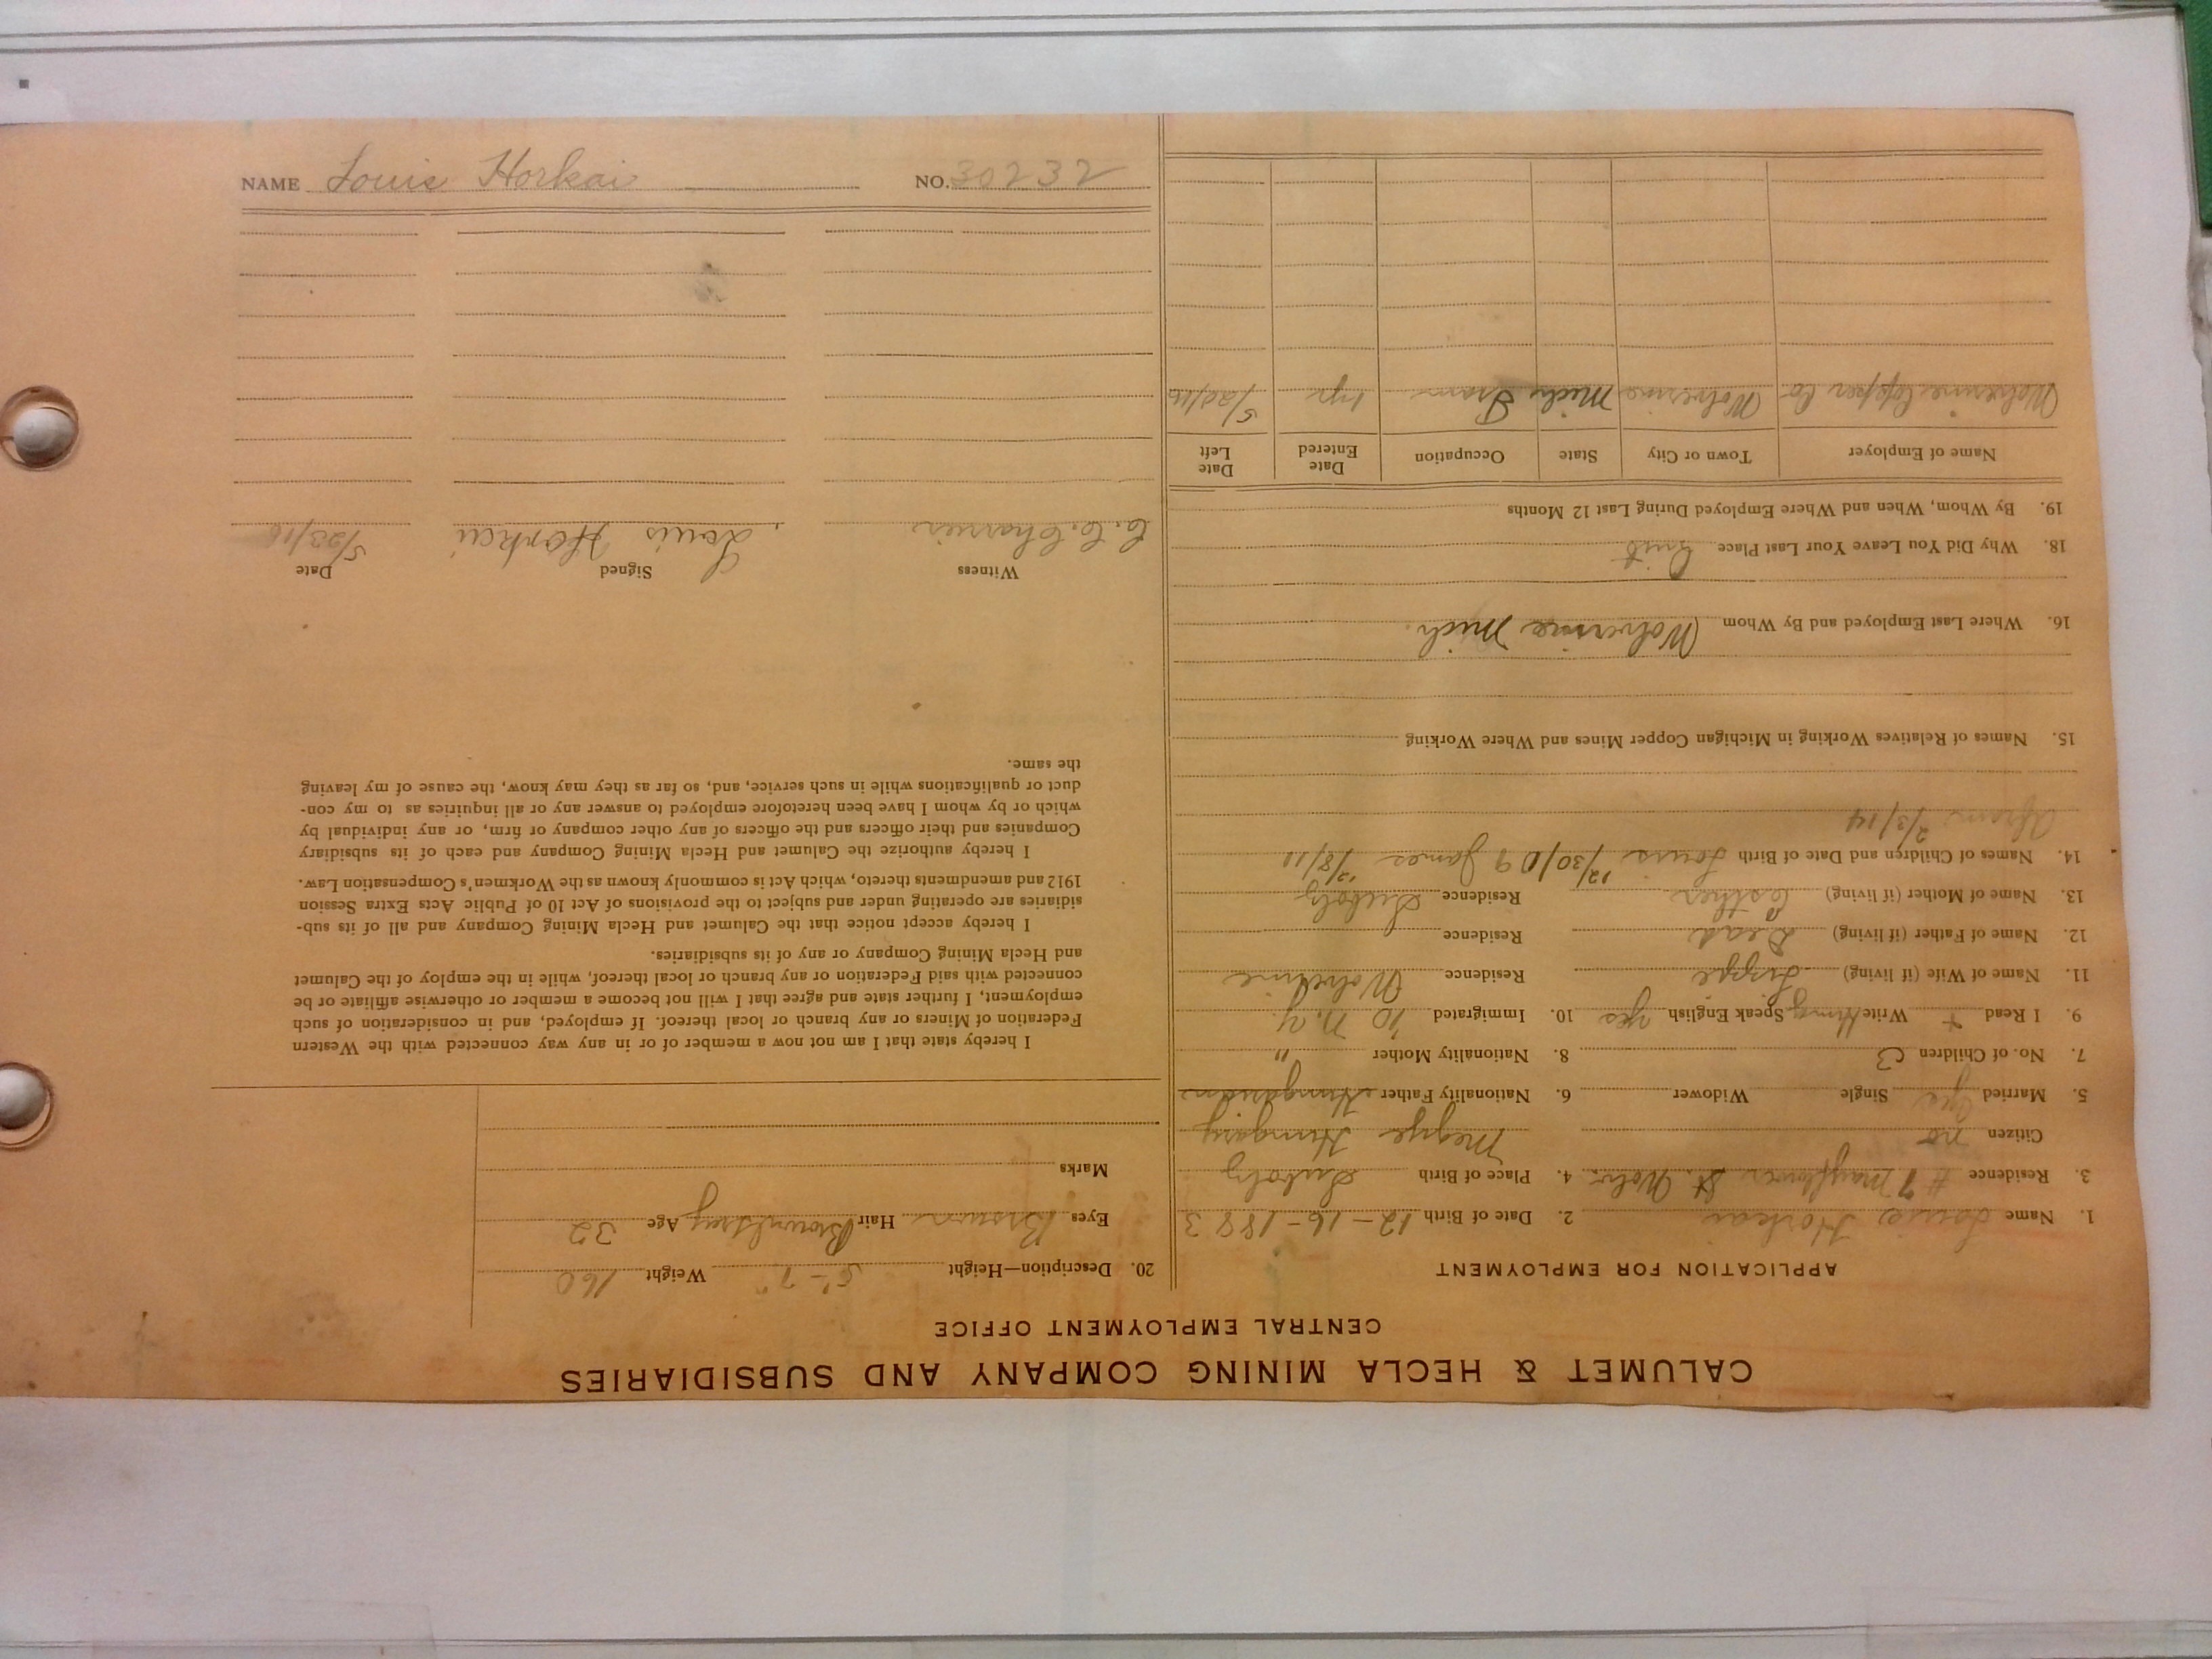 CALUMET & HECLA MINING COMPANY AND SUBSIDIARIES
CENTRAL EMPLOYMENT OFFICE
APPLICATION FOR EMPLOYMENT
1. Name Louis Horkai 2. Date of Birth 12-16-1883
3. Residence #9 Mayflower St. Wolv. 4. Place of Birth Suboly
Citizen no Megye Hungary
5. Married yes Single Widower 6. Nationality Father Hungarian
7. No. of Children 3 8. Nationality Mother "
9. I Read + Write Hung Speak English yes 10. Immigrated '10 N.Y.
11. Name of Wife (if living) Residence Wolverine
12. Name of Father (if living) Dead Residence
13. Name of Mother (if living) Esther Residence Suboly
14. Names of Children and Date of Birth Louis 12/30/09 James
2/3/14
15. Names of Relatives Working in Michigan Copper Mines and Where Working
16. Where Last Employed and By Whom Wolverine Mich.
18. Why Did You Leave Your Last Place Quit
19. By Whom, When and Where Employed During Last 12 Months
Name of Employer Town or City State Occupation Date Entered Date Left
Wolverine Copper Co Wolverine Mich Tram 1 yr
20. Description—Height 5'-7" Weight 160
Eyes Brown Hair Brown&gray Age 32
Marks
I hereby state that I am not now a member of or in any way connected with the Western
Federation of Miners or any branch or local thereof. If employed, and in consideration of such
employment, I further state and agree that I will not become a member or otherwise affiliate or be
connected with said Federation or any branch or local thereof, while in the employ of the Calumet
and Hecla Mining Company or any of its subsidiaries.
I hereby accept notice that the Calumet and Hecla Mining Company and all of its sub-
sidiaries are operating under and subject to the provisions of Act 10 of Public Acts Extra Session
1912 and amendments thereto, which Act is commonly known as the Workmen's Compensation Law.
I hereby authorize the Calumet and Hecla Mining Company and each of its subsidiary
Companies and their officers and the officers of any other company or firm, or any individual by
which or by whom I have been heretofore employed to answer any or all inquiries as to my con-
duct or qualifications while in such service, and, so far as they may know, the cause of my leaving
the same.
Witness Signed Date
Louis Horkai 5/23/16
NAME Louis Horkai NO. 30232